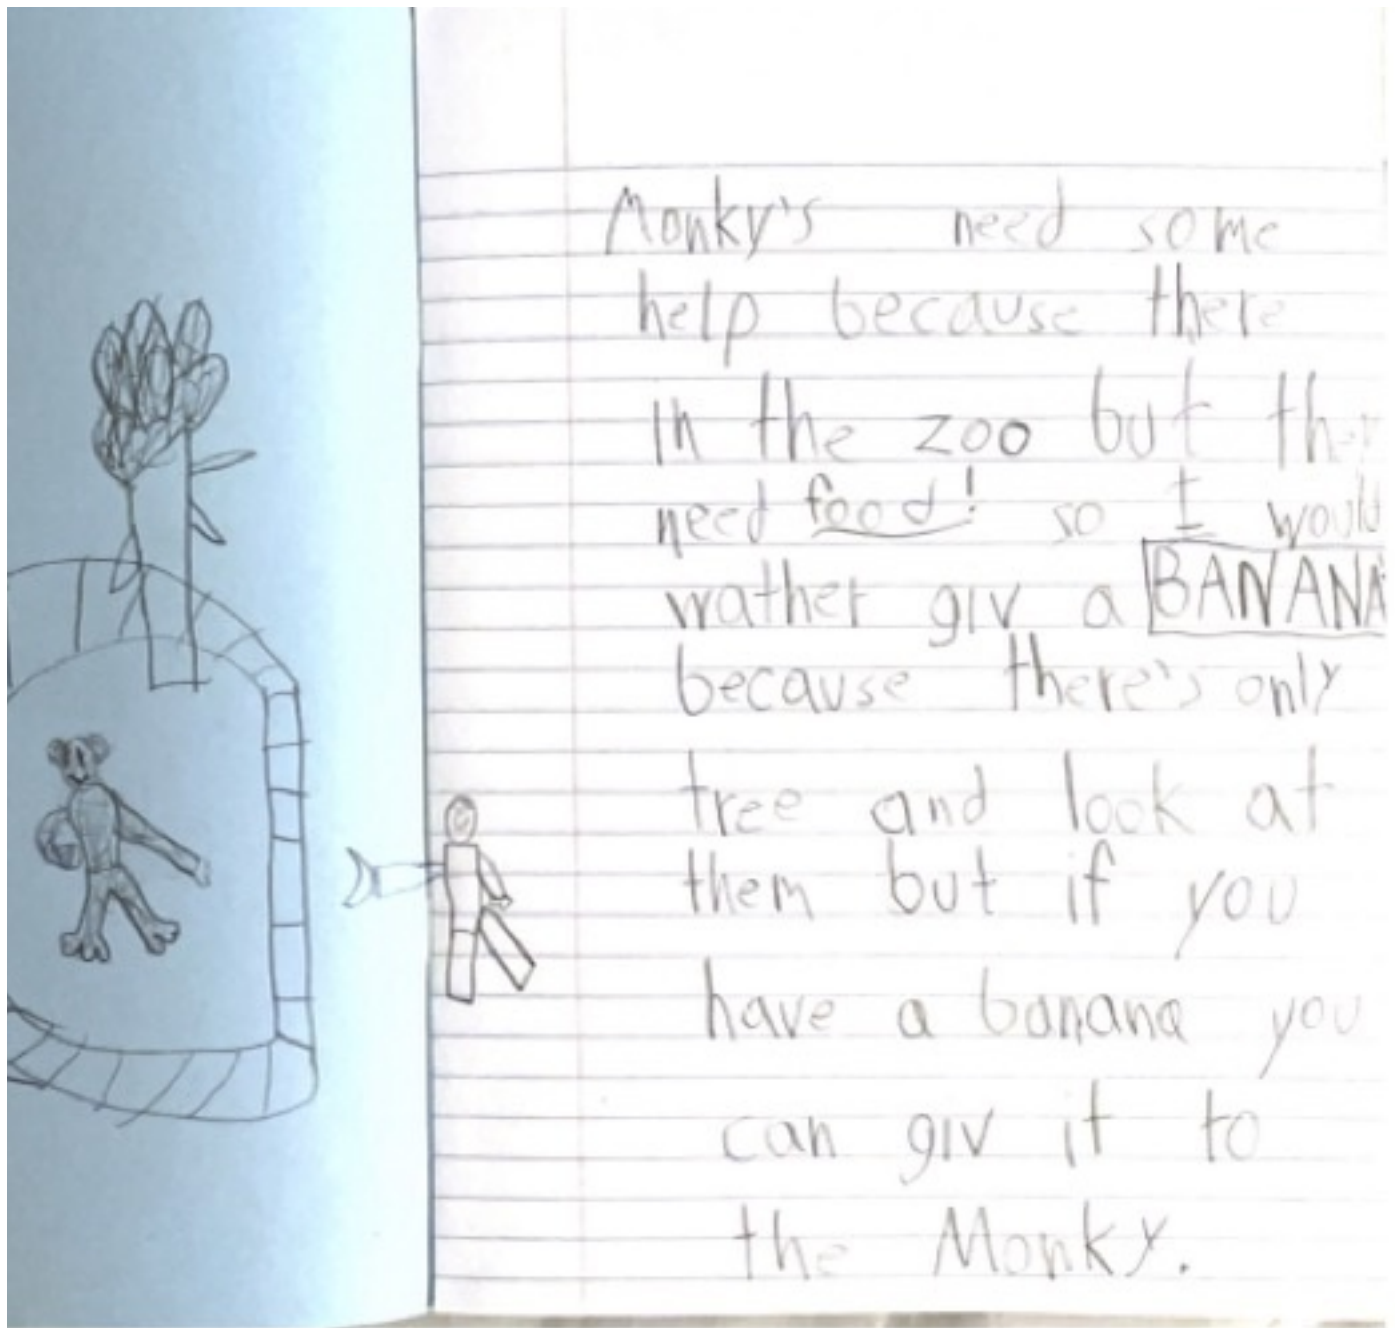 Monky's need some
help because there
in the zoo but
need food! so I would
wrather giv a BANANA
because there's only
tree and look at
them but if you
have a banana you
can giv it to
the Monky.